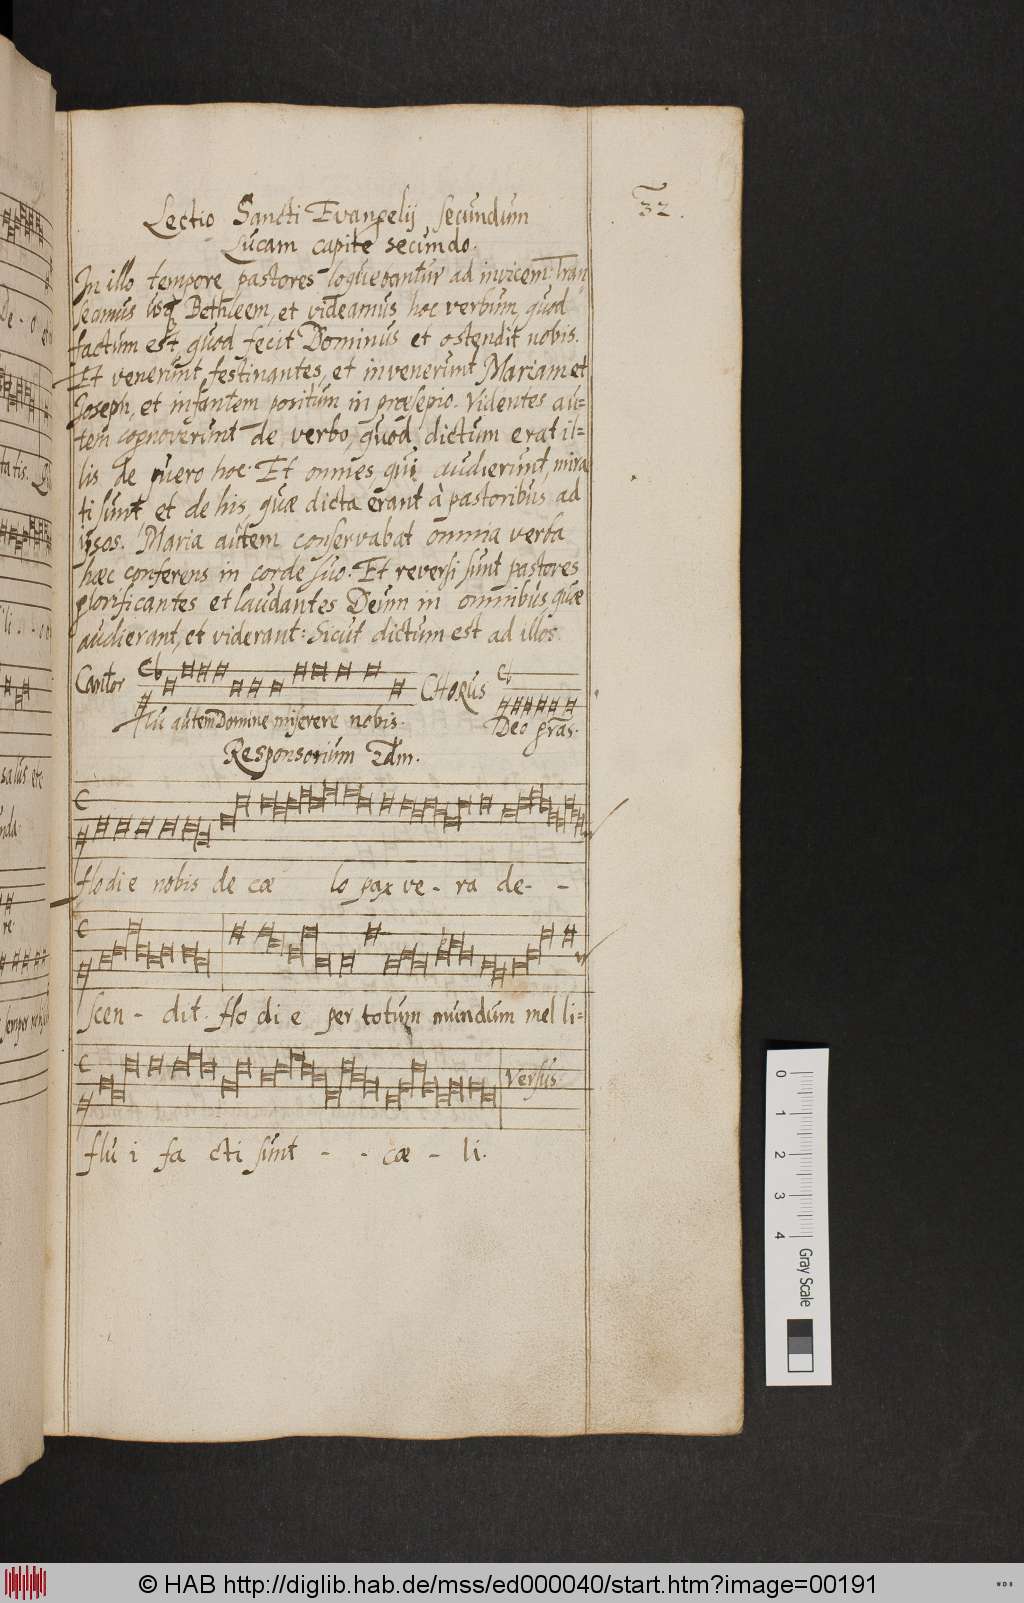 32.
Lectio Sancti Evangelij secundum
Lucam capite secundo.
In illo tempore pastores loquebantur ad invicem: Tran
seamus usq Bethleem, et videamus hoc verbum, quod
factum est, quod fecit Dominus et ostendit nobis.
Et venerunt festinantes, et invenerunt Mariam et
Joseph, et infantem positum in præsepio. Videntes au=
tem cognoverunt de verbo, quod dictum erat il=
lis de puero hoc. Et omnes qui audierunt, mira
ti sunt et de his, quæ dicta erant à pastoribus ad
ipsos. Maria autem conservabat omnia verba
hæc conferens in corde suo. Et reversi sunt pastores
glorificantes et laudantes Deum in omnibus quæ
audierant, et viderant: Sicut dictum est ad illos.
Cantor CHORUS
Tu autem Domine miserere nobis. Deo gras.
Responsorium 2dm.
Hodie nobis de cæ lo pax ve - ra de - -
scen - dit. Ho di e per totum mundum mel li=
Versus
flu i fa cti sunt - - cæ - li.
De - o
tatis.
salus etc
re.
semper
0 1 2 3 4
Gray Scale
© HAB http://diglib.hab.de/mss/ed000040/start.htm?image=00191